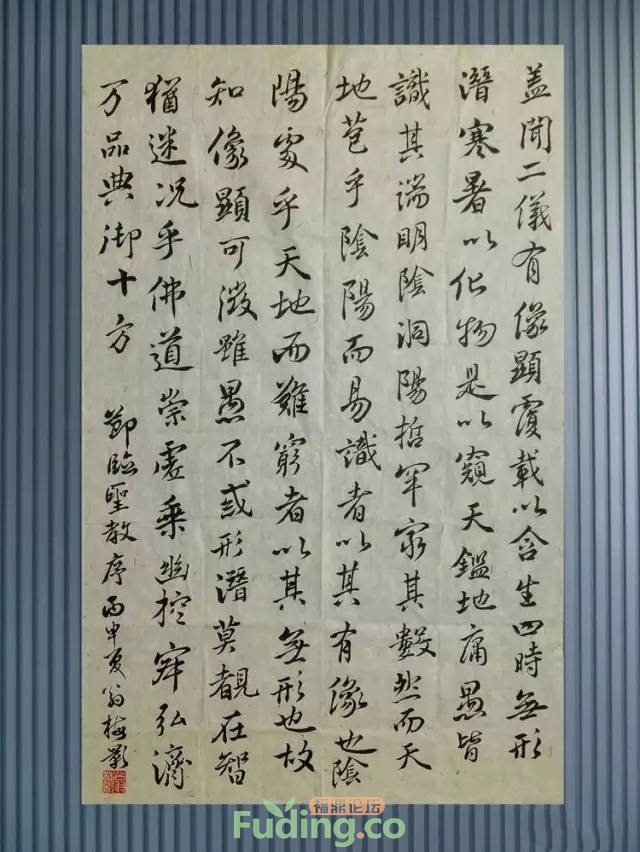 盖聞二儀有像顯覆載以含生四時無形
潛寒暑以化物是以窺天鑑地庸愚皆
識其端明陰洞陽哲罕窮其數然而天
地苞乎陰陽而易識者以其有像也陰
陽處乎天地而難窮者以其無形也故
知像顯可徵雖愚不惑形潛莫覩在智
猶迷况乎佛道崇虛乘幽控寂弘濟
万品典御十方
節臨聖教序丙申夏翁梅影
福鼎论坛
Fuding.co